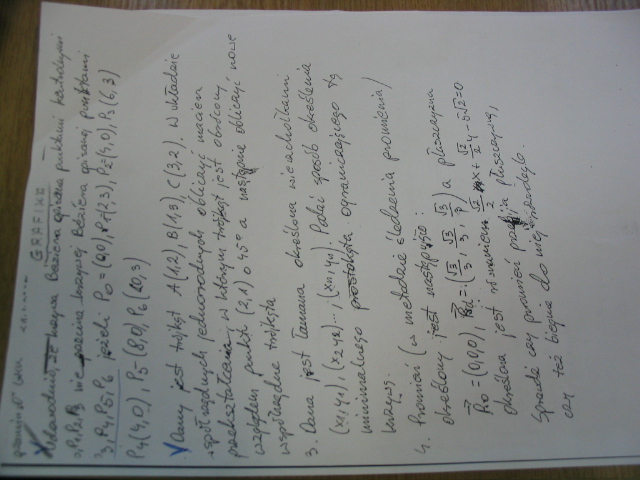 GRAFIKA
Udowodnij, że krzywa Béziera oparta punktami kontrolnymi
P1, P2, P3 nie przecina krzywej Béziera opartej punktami
P3, P4, P5, P6 jeżeli P0=(0,0), P1(1,3), P2=(4,0), P3(6,3)
P4(4,0), P5=(8,0), P6(20,3)
Dany jest trójkąt A(1,2), B(1,3), C(3,2). W układzie
współrzędnych jednorodnych obliczyć macierz
przekształcenia, w którym trójkąt jest obrócony
względem punktu (2,1) o 45° a następnie obliczyć nowe
współrzędne trójkąta
3. Dana jest łamana określona wierzchołkami
(x1,y1), (x2,y2)..., (xn,yn). Podać sposób określenia
minimalnego prostokąta ograniczającego tę
krzywą.
4. Promień (w metodzie śledzenia promienia)
określony jest następująco:
R0=(0,0,0), Rd=(√3/3, √3/3, √3/3) a płaszczyzna
określona jest równaniem √2/2 x + √2/2 - 5√2=0
Sprawdź czy promień przebija płaszczyznę,
czy też biegnie do niej równolegle.